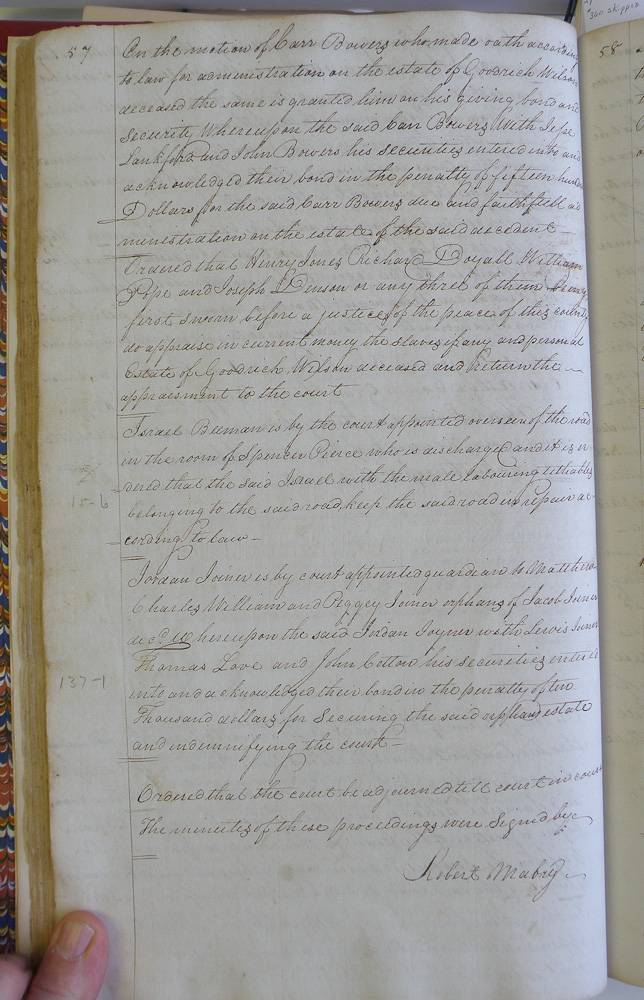 57
On the motion of Carr Bowers who made oath according
to law for administration on the estate of Goodrich Wilson
deceased the same is granted him on his giving bond and
Security Whereupon the said Carr Bowers With Jesse
Lankford and John Bowers his securities entered into and
acknowledged their bond in the penalty of fifteen
Dollars for the said Carr Bowers due and faithfull ad
ministration on the estate of the said decedent
Ordered that Henry Jones Richard Doyall William
Pope and Joseph Denson or any three of them being
first sworn before a justice of the peace of this county
do appraise in current money the slaves if any and personal
Estate of Goodrich Wilson deceased and Return the
appraisment to the court
Israel Beeman is by the court appointed overseer of the road
in the room of Spencer Pierce who is discharged and it is or
dered that the said Israel with the male labouring tithables
belonging to the said road keep the said road in repair ac
cording to law
15-6
Jordan Joiner is by court appointed guardian to Matthew
Charles William and Peggey Joiner orphans of Jacob Joiner
decd. Whereupon the said Jordan Joyner with Lewis Joiner
Thomas Love and John Cotton his securities entered
into and acknowledged their bond in the penalty of two
Thousand dollars for Securing the said orphans estate
and indemnifying the court
137-1
Ordered that the court be adjourned till court in course
The minutes of these proceedings were Signed by
Robert Mabry
58
360 skipped